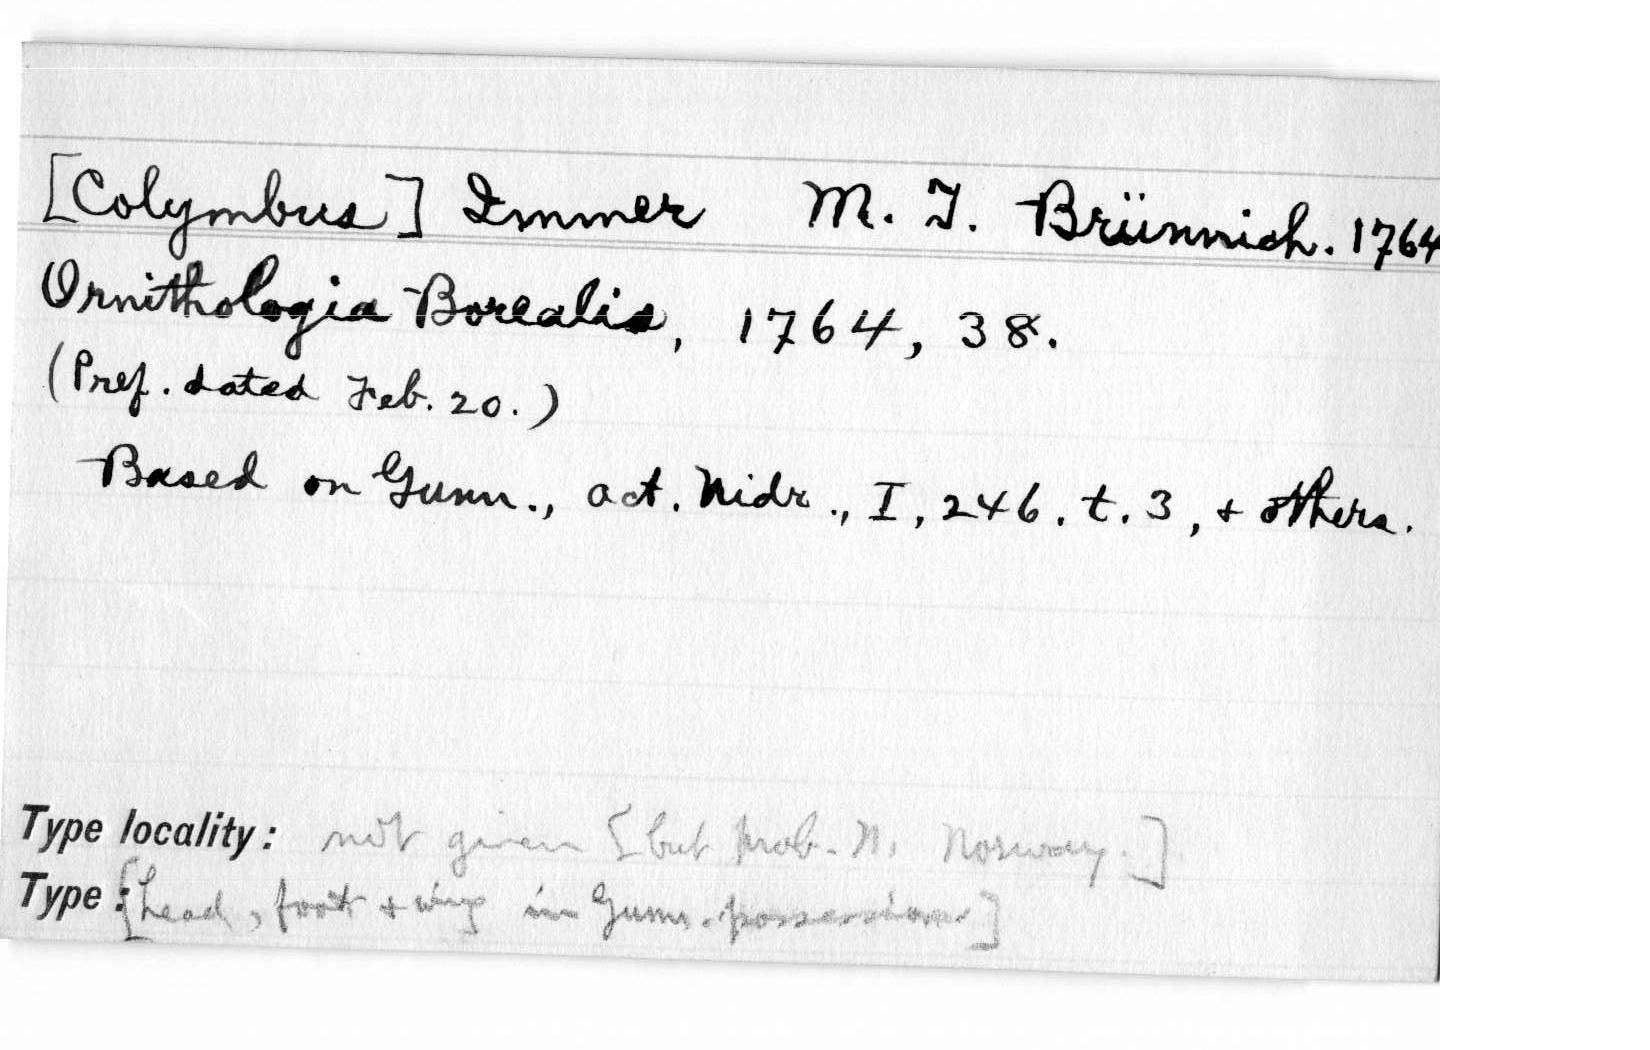 [Colymbus] Immer M. T. Brünnich. 1764
Ornithologia Borealis, 1764, 38.
(Pref. dated Feb. 20.)
Based on Gunn., act. Nidr., I, 246. t. 3, + others.
Type locality: not given [but prob. N. Norway.]
Type: [head, foot + wing in Gunn. possession]